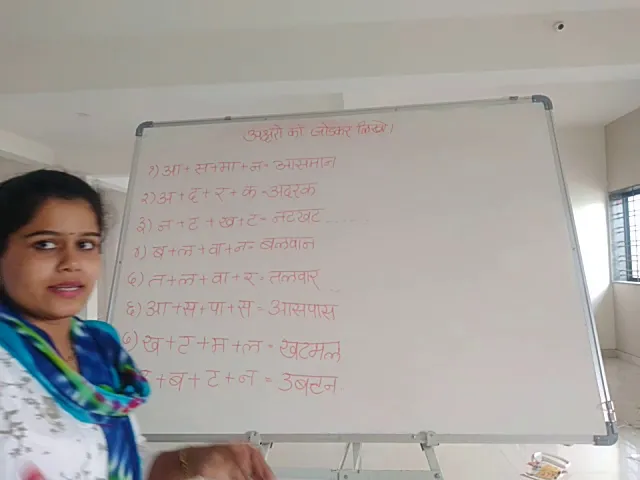 अक्षरों को जोडकर लिखिए।
१) आ+स+मा+न= आसमान
२) अ+द+र+क =अदरक
३) न+ट+ख+ट= नटखट ......
४) ब+ल+वा+न= बलवान
५) त+ल+वा+र= तलवार ..
६) आ+स+पा+स= आसपास
७) ख+ट+म+ल = खटमल
+ब+ट+न = उबटन.